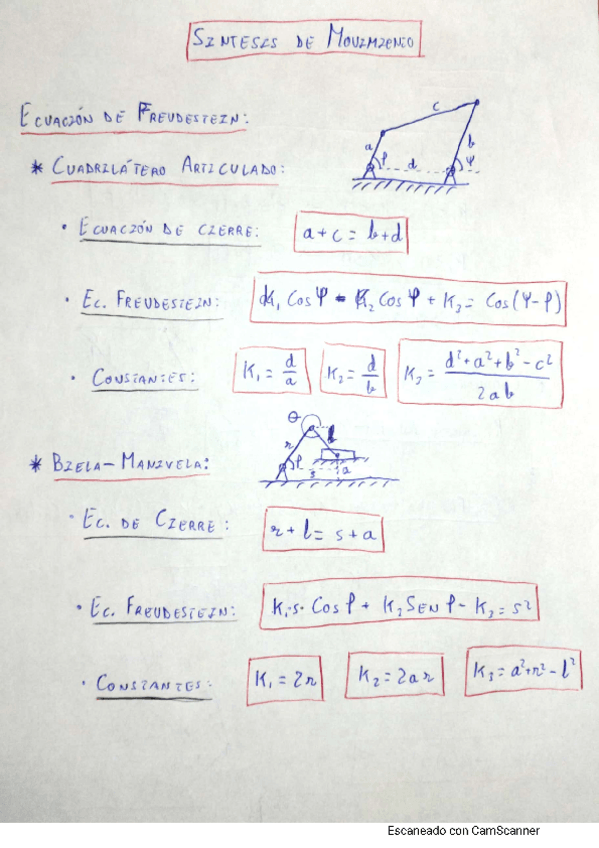 SINTESIS DE MOVIMIENTO
ECUACIÓN DE FREUDESTEIN:
* CUADRILÁTERO ARTICULADO:
a c b d φ ψ
· ECUACIÓN DE CIERRE: a + c = b + d
· EC. FREUDESTEIN: K₁ Cos ψ - K₂ Cos φ + K₃ = Cos(ψ-φ)
· CONSTANTES: K₁ = d/a K₂ = d/b K₃ = (d²+a²+b²-c²)/2ab
* BIELA-MANIVELA:
θ r l φ s a
· EC. DE CIERRE: r + l = s + a
· EC. FREUDESTEIN: K₁s· Cos φ + K₂ SEN φ - K₃ = s²
· CONSTANTES: K₁ = 2r K₂ = 2ar K₃ = a²+r²-l²
Escaneado con CamScanner